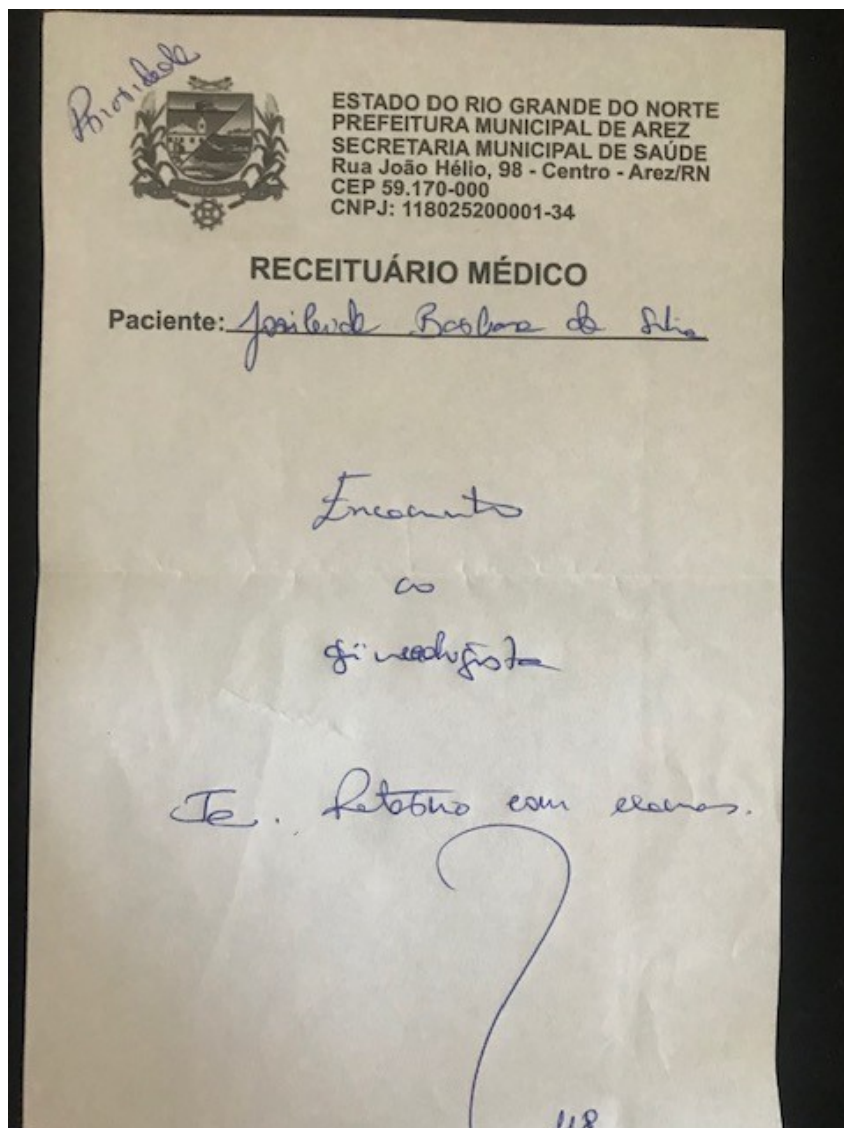 Prioridade
ESTADO DO RIO GRANDE DO NORTE
PREFEITURA MUNICIPAL DE AREZ
SECRETARIA MUNICIPAL DE SAÚDE
Rua João Hélio, 98 - Centro - Arez/RN
CEP 59.170-000
CNPJ: 118025200001-34
RECEITUÁRIO MÉDICO
Paciente: Barbosa da Silva
Encaminho
ao
ginecologista
com exames.